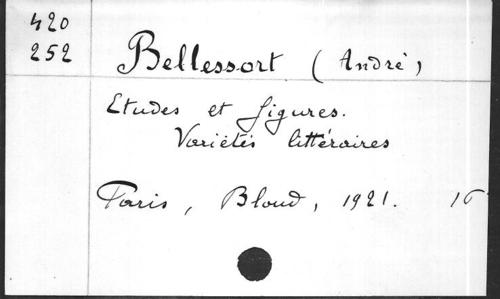 420
252
Bellessort (André)
Etudes et figures.
Variétés littéraires
Paris, Bloud, 1921. 16